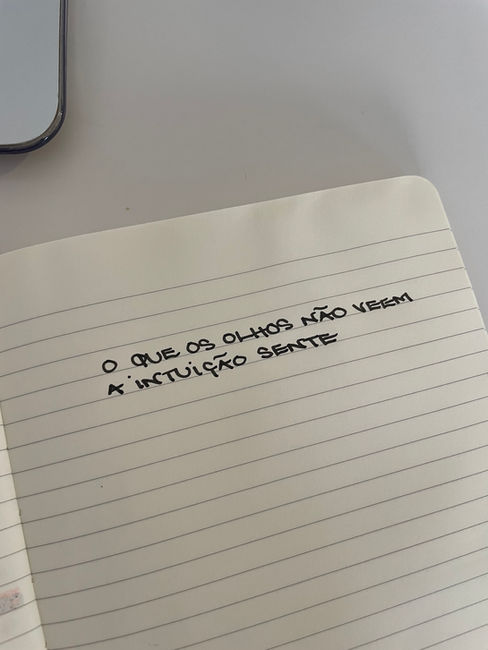 O QUE OS OLHOS NÃO VEEM
A INTUIÇÃO SENTE